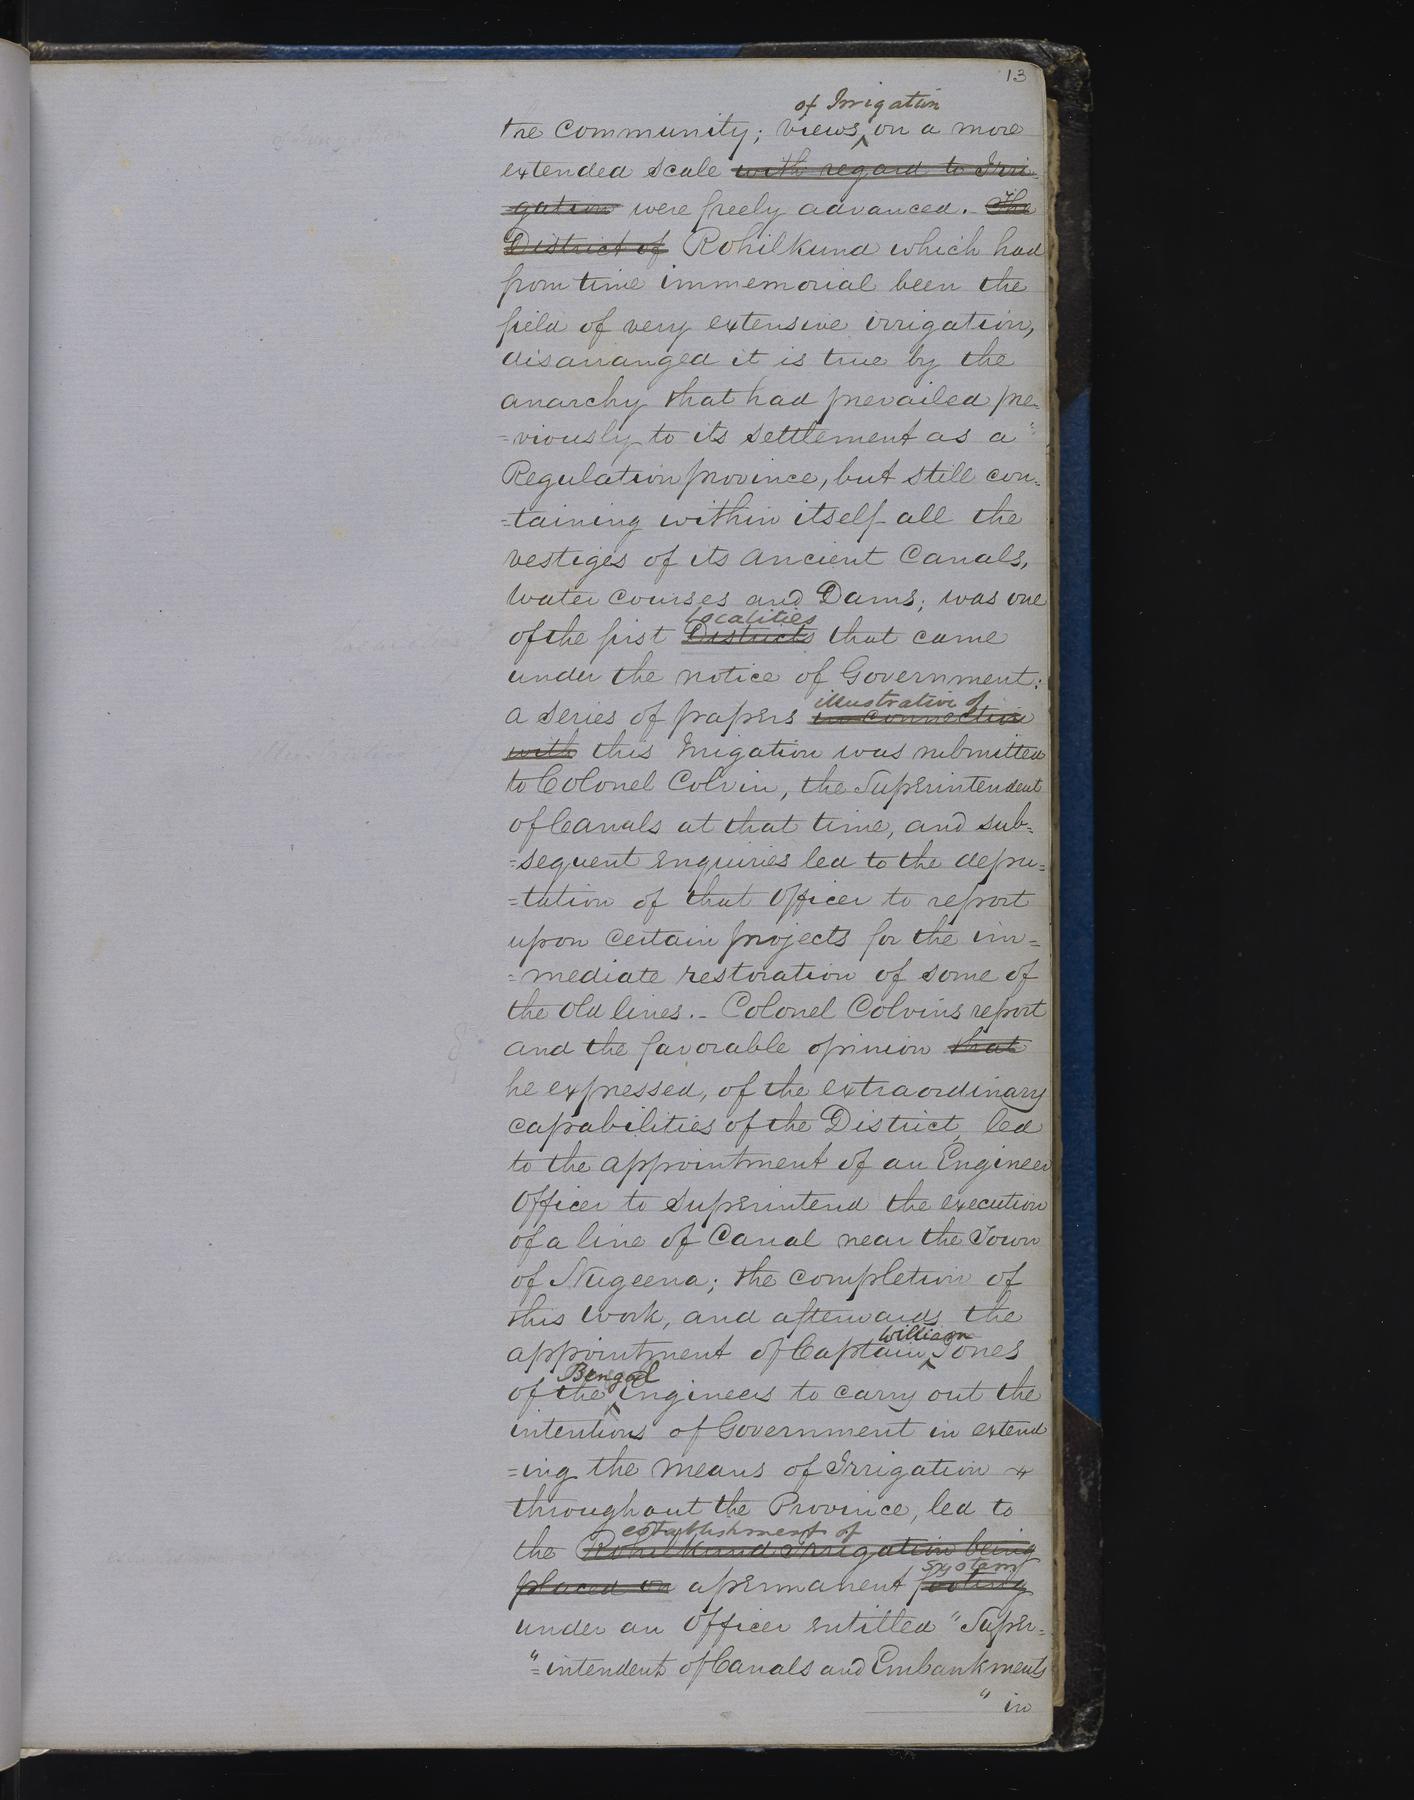 13
of Irrigation
the community; views on a more
extended scale with regard to Irri-
gation were freely advanced. - The
District of Rohilkund which had
from time immemorial been the
field of very extensive irrigation,
disarranged it is true by the
anarchy that had prevailed pre-
=viously to its settlement as a
Regulation province, but still con-
=taining within itself all the
vestiges of its ancient Canals,
Water courses and Dams; was one
localities
of the first Districts that came
under the notice of Government:
illustrative of
a series of papers in connection
with this Irrigation was submitted
to Colonel Colvin, the Superintendent
of Canals at that time, and sub=
=sequent enquiries led to the depu=
=tation of that Officer to report
upon certain projects for the im=
=mediate restoration of some of
the old lines. - Colonel Colvins report
and the favorable opinion that
he expressed, of the extraordinary
capabilities of the District, led
to the appointment of an Engineer
Officer to superintend the execution
of a line of Canal near the Town
of Nugeena; the completion of
this work, and afterwards the
William
appointment of Captain Jones
Bengal
of the Engineers to carry out the
intentions of Government in extend
=ing the means of Irrigation
throughout the Province, led to
establishment of
the Rohilkund Irrigation being
system
placed on a permanent footing
under an Officer entitled "Super=
"=intendent of Canals and Embankments
" in